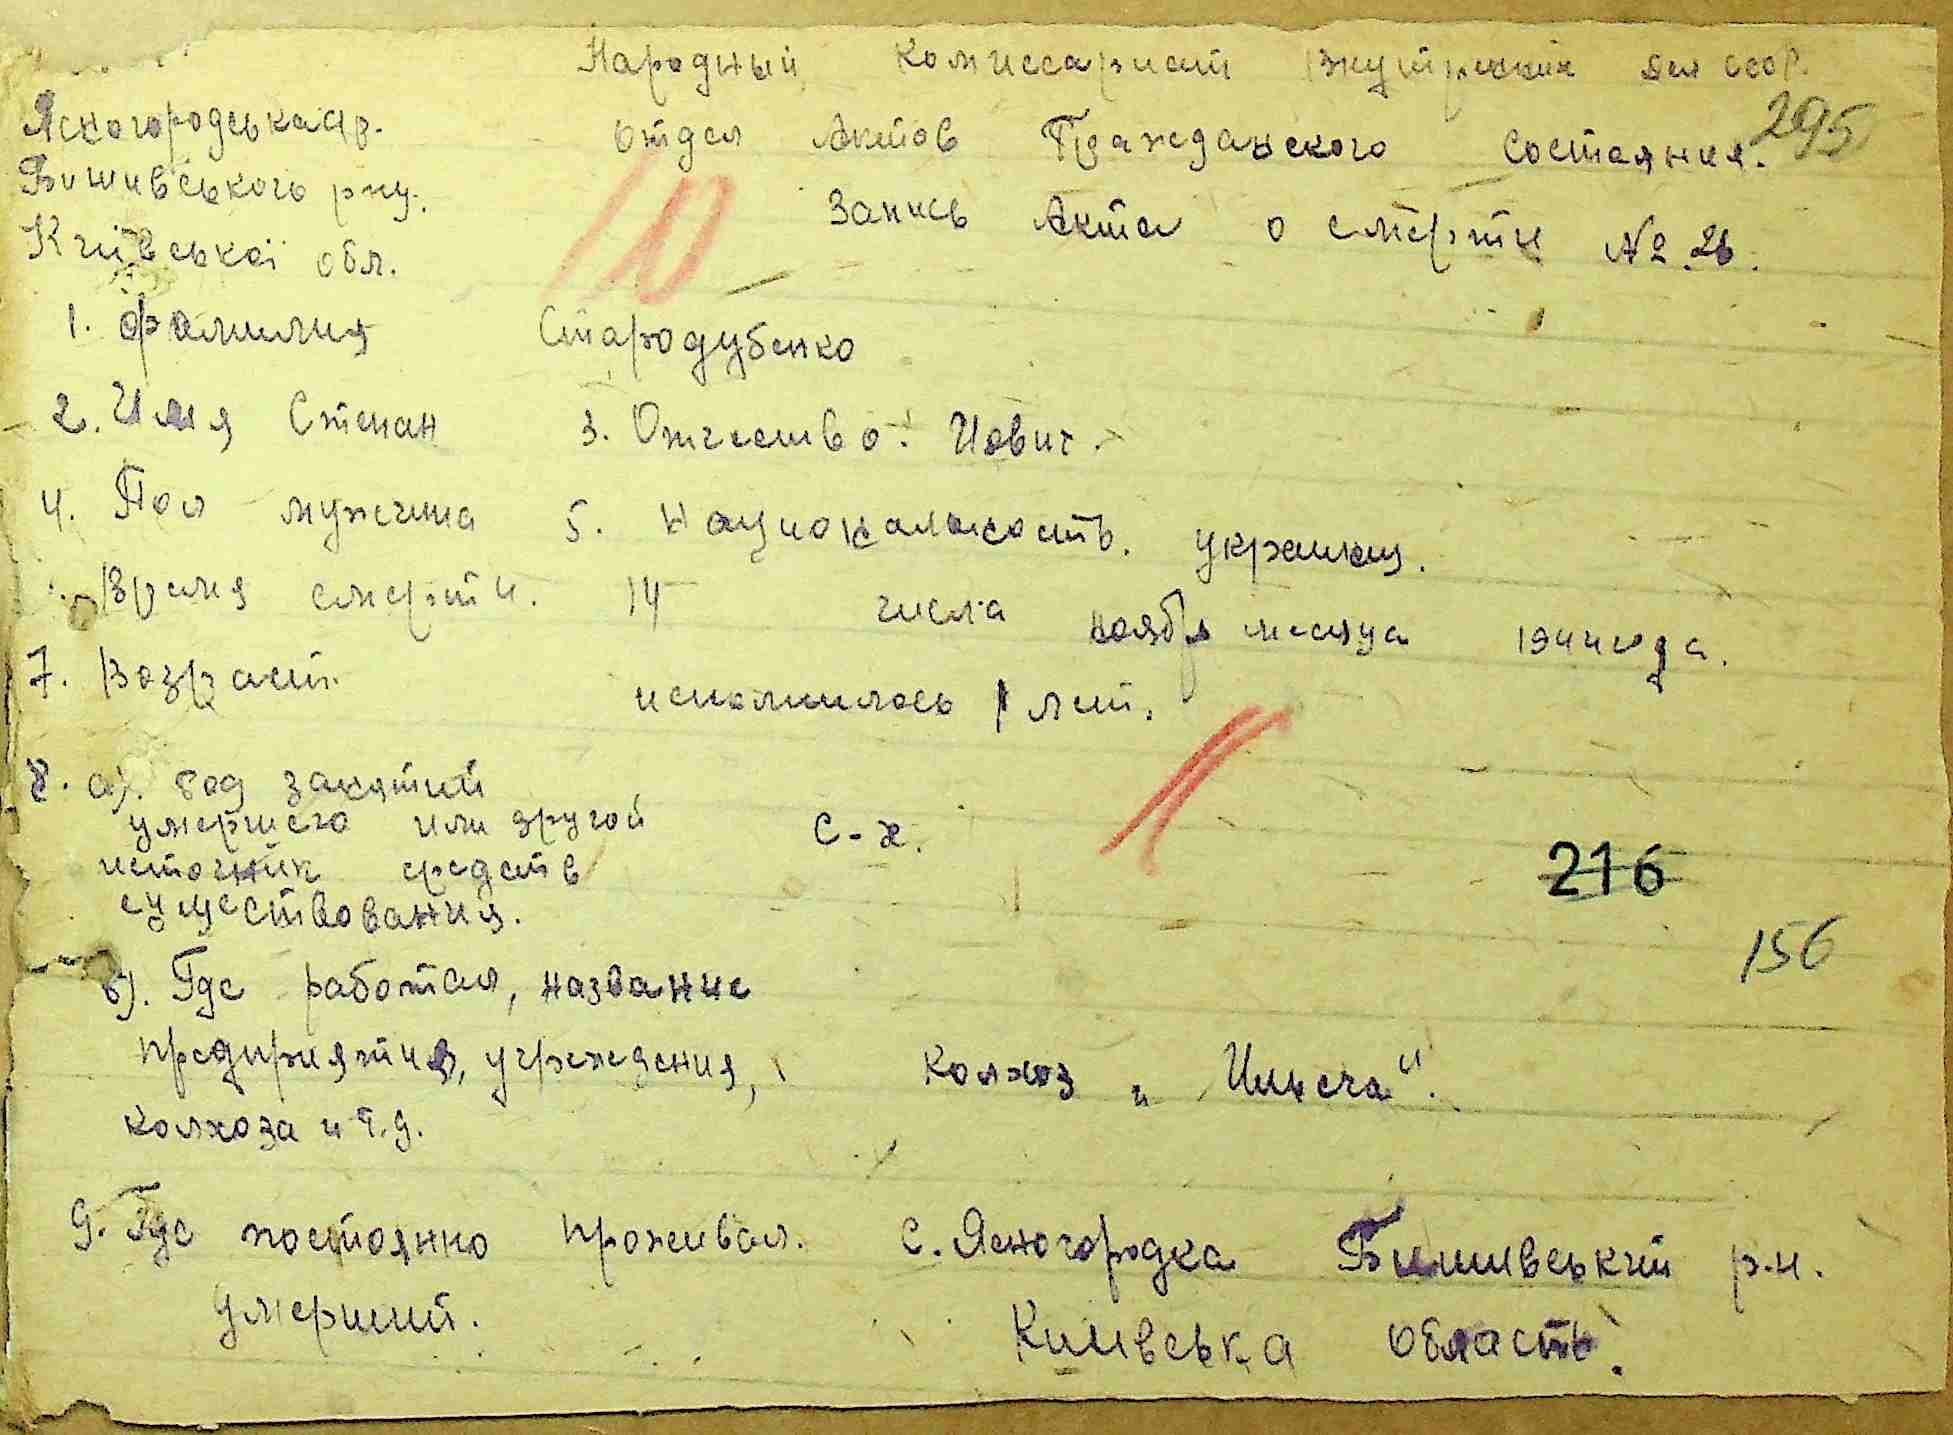 Народный Комиссариат Внутренних дел СССР.
295
Ясногородська
Бишивського р-ну.
Київської обл.
Отдел Актов Гражданского Состояния.
Запись Акта о смерти №
1. Фамилия Стародубенко
2. Имя Степан 3. Отчество: Иович.
4. Пол мужчина 5. Национальность. украинец.
Время смерти. 14 числа ноября месяца 1944 года.
7. Возраст. исполнилось 1 лет.
8. а). род занятий
умершего или другой
источник средств
существования.
С-х.
216
156
б). Где работал, название
предприятия, учреждения,
колхоза и т.д.
колхоз „
9. Где постоянно проживал.
умерший.
с. Ясногородка Бишивський р-н.
Киивська область.